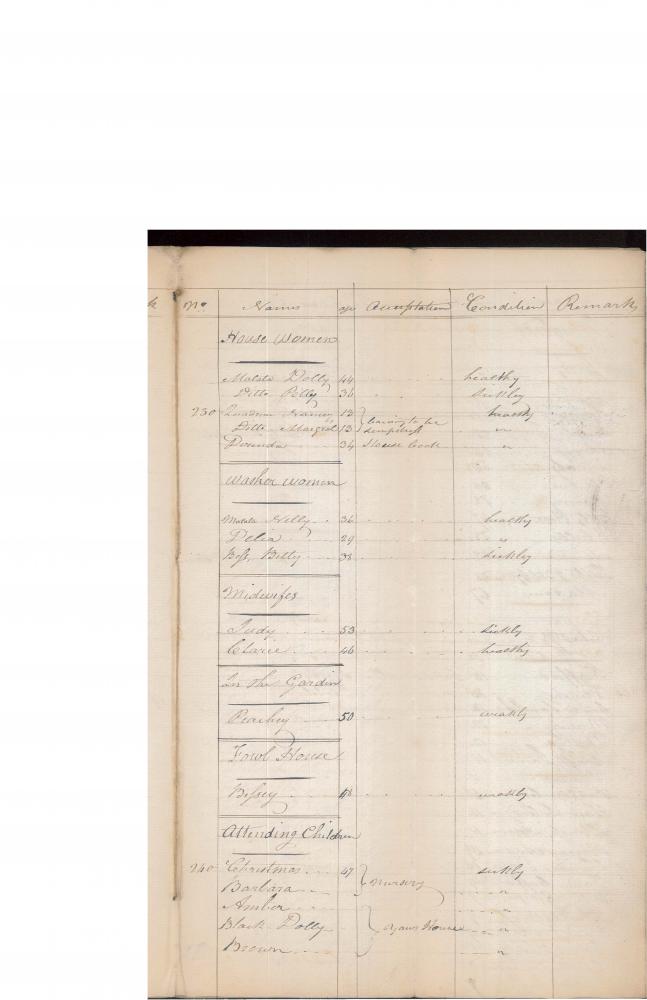 k No Names age Accuptation Condition Remark
House Women
Mulato Dolly 44 healthy
Ditto Polly 36 sickley
230 Quadroon Nancy 12 } learning to be healthy
Ditto Margret 13 } sempstress "
Dorinda 34 House Cook "
Washer women
Mulato Nelly 36 healthy
Delia 29 "
Bess, Betty 38 sickly
Midwifes
Judy 53 sickly
Clarie 46 healthy
In the Gardin
Peachey 50 weakly
Fowl House
Bessey 48 weakly
Attending Children
240 Christmas 47 } Nursery sickly
Barbara "
Amber } Yaws House "
Black Dolly "
Brown "